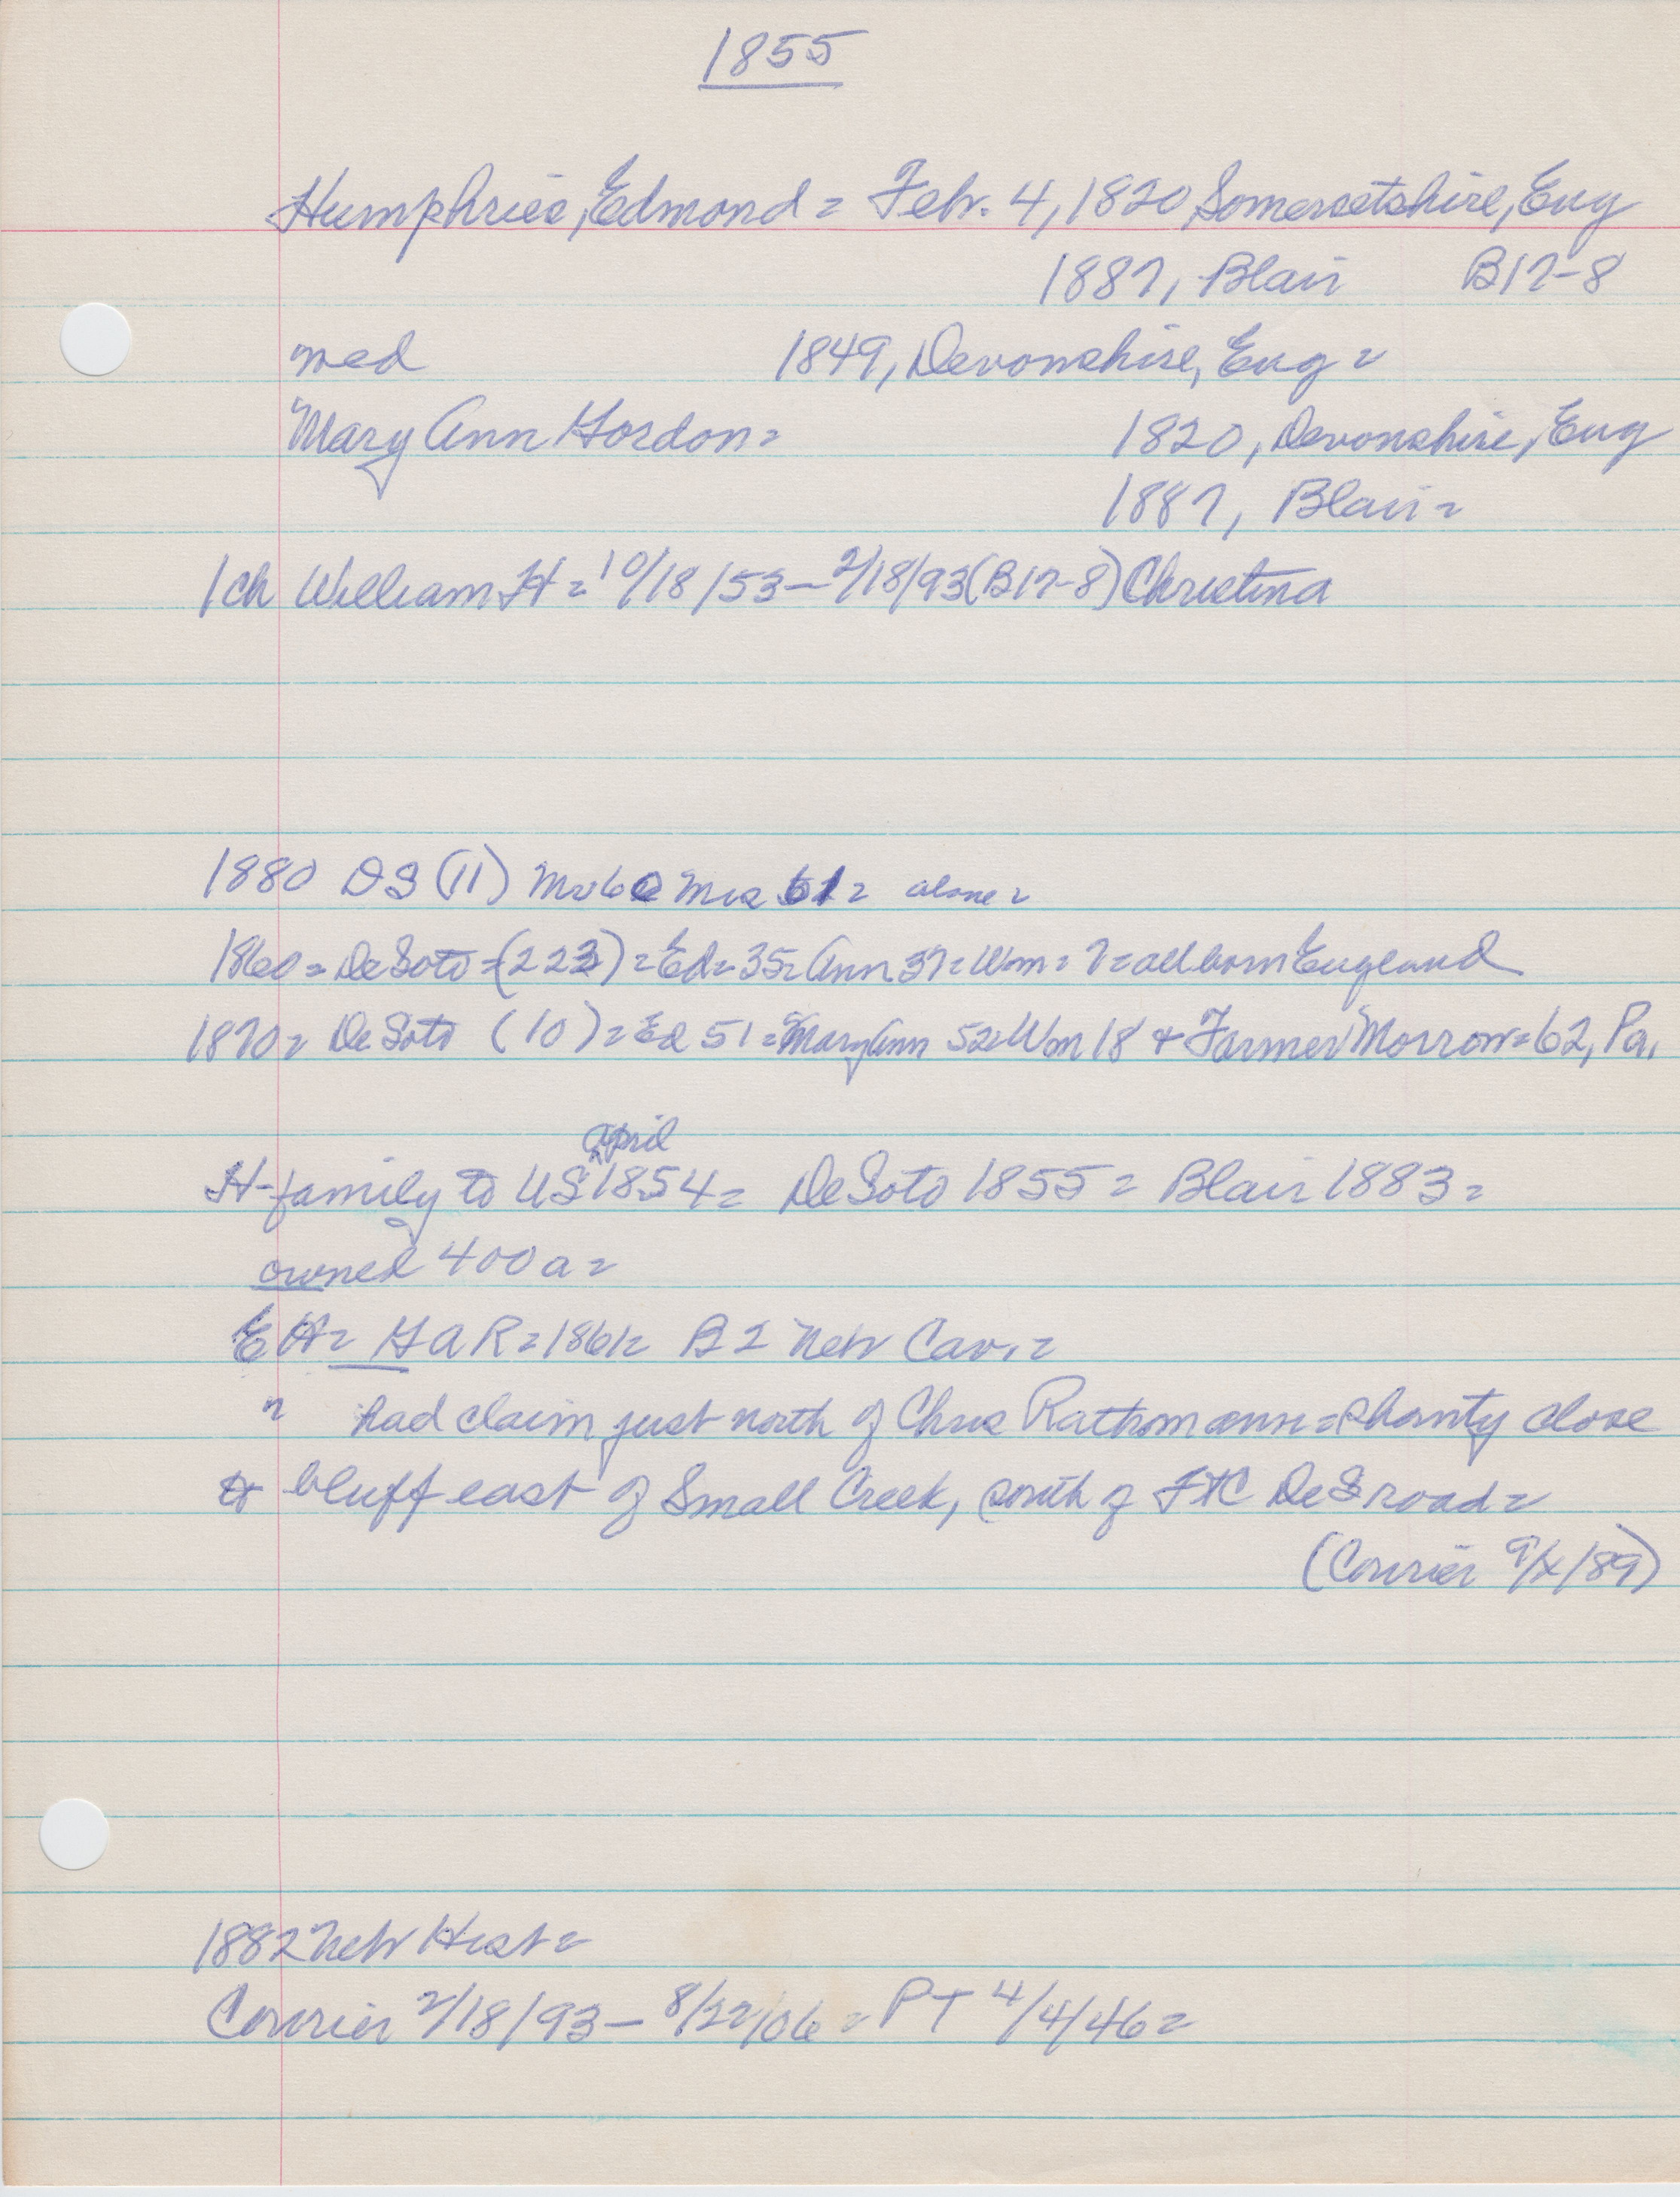 1855
Humphries, Edmond = Febr. 4, 1820, Somersetshire, Eng
1887, Blair B17-8
med 1849, Devonshire, Eng =
Mary Ann Gordon =
1820, Devonshire, Eng
1887, Blair =
1ch William H = 10/18/53 - 2/18/93 (B17-8) Christina
1880 DS (11) Mr 60 Mrs 61 = alone =
1860 = DeSoto = (223) = Ed = 35 = Ann 37 = Wm = 7 = all born England
1870 = DeSoto (10) = Ed 51 = Mary Ann 52 = Wm 18 + Farmer Morrow = 62, Pa.
H-family to US April 1854 = DeSoto 1855 = Blair 1883 =
owned 400 a =
EH = GAR = 1861 = B 2 Nebr Cav. =
" had claim just north of Chris Rathmann = shanty close
to bluff east of Small Creek, south of FtC DeS road =
(Courier 9/x/89)
1882 Nebr Hist =
Courier 2/18/93 - 8/22/06 = PT 4/4/46 =